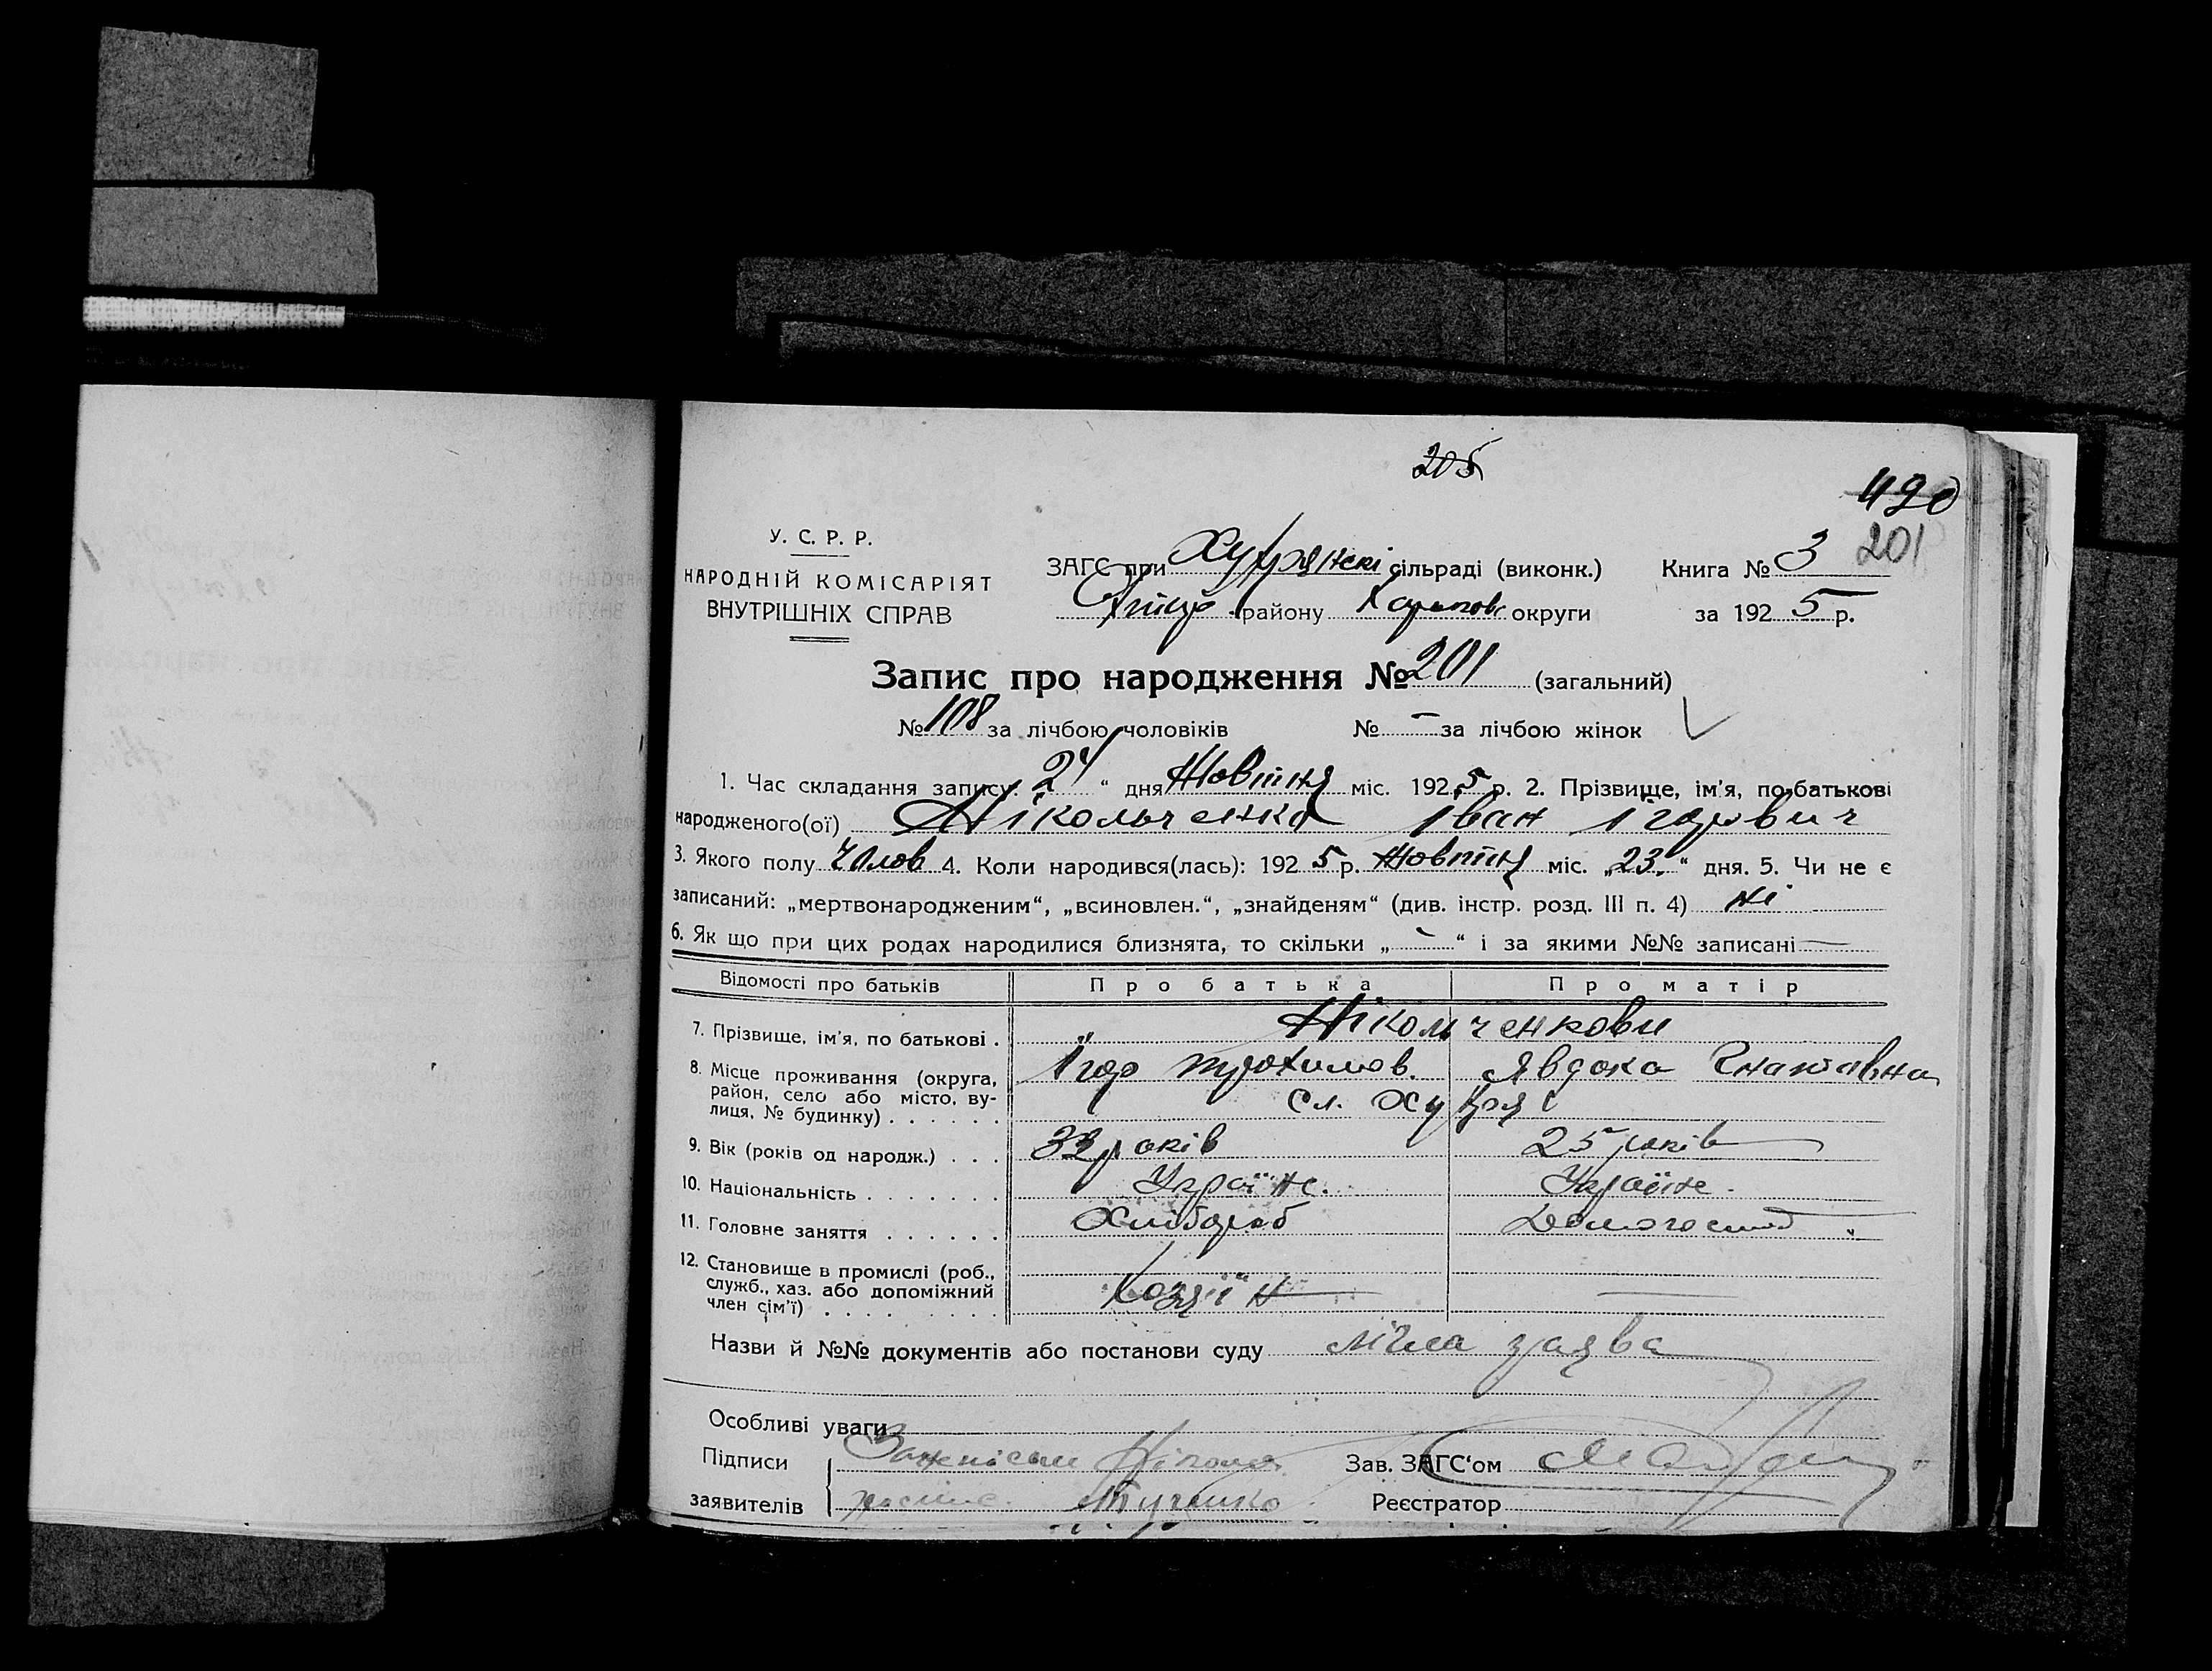 205
490
У. С. Р. Р.
НАРОДНІЙ КОМІСАРІЯТ
ВНУТРІШНІХ СПРАВ
ЗАГС при сільраді (виконк.)
району округи
Книга № 3 201
за 1925 р.
Запис про народження № 201 (загальний)
№ 108 за лічбою чоловіків № – за лічбою жінок
1. Час складання запису: 24 “ дня Жовтня міс. 1925 р. 2. Прізвище, ім'я, по батькові
народженого(ої) Нікольченко Іван Ігорович
3. Якого полу Чолов 4. Коли народився(лась): 1925 р. Жовтня міс. „23.“ дня. 5. Чи не є
записаний: „мертвонародженим“, „всиновлен.“, „знайденям“ (див. інстр. розд. III п. 4) ні
6. Як що при цих родах народилися близнята, то скільки „ – “ і за якими №№ записані —
Відомості про батьків Про батька Про матір
7. Прізвище, ім'я, по батькові . Нікольченкови
8. Місце проживання (округа, Ігор Трохимов. Явдока Гнатівна
район, село або місто, ву- сл.
лиця, № будинку) . . . . . .
9. Вік (років од народж.) . . . років 25 років
10. Національність . . . . . . . Україн. Україн.
11. Головне заняття . . . . . . Хлібороб Домогосп
12. Становище в промислі (роб.,
служб., хаз. або допоміжний Хозяїн —
член сім'ї) . . . . . . . . .
Назви й №№ документів або постанови суду заява
Особливі уваги
Підписи Зав. ЗАГС'ом
заявителів Реєстратор